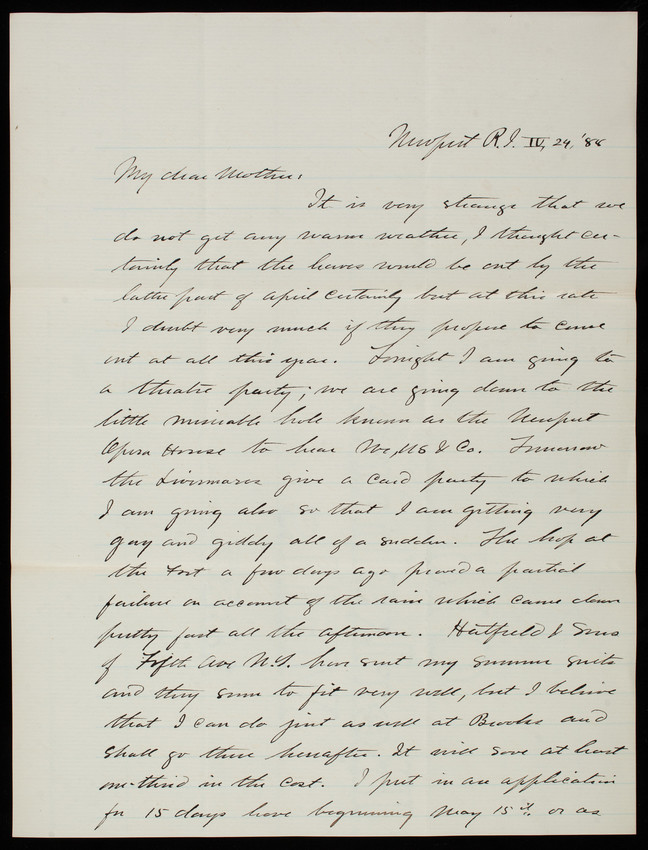 Newport R.I. IV, 24, '88
My dear Mother:
It is very strange that we
do not get any warm weather, I thought cer-
tainly that the leaves would be out by the
latter part of April certainly but at this rate
I doubt very much if they propose to come
out at all this year. Tonight I am going to
a theatre party; we are going down to the
little miserable hole known as the Newport
Opera House to hear We, Us & Co. Tomorrow
the Livermores give a card party to which
I am going also so that I am getting very
gay and giddy all of a sudden. The hop at
the Fort a few days ago proved a partial
failure on account of the rain which came down
pretty fast all the afternoon. Hatfield & Sons
of Fifth Ave N.Y. have sent my summer suits
and they seem to fit very well, but I believe
that I can do just as well at Brooks and
shall go there hereafter. It will save at least
one-third in the cost. I put in an application
for 15 days leave beginning May 15th or as